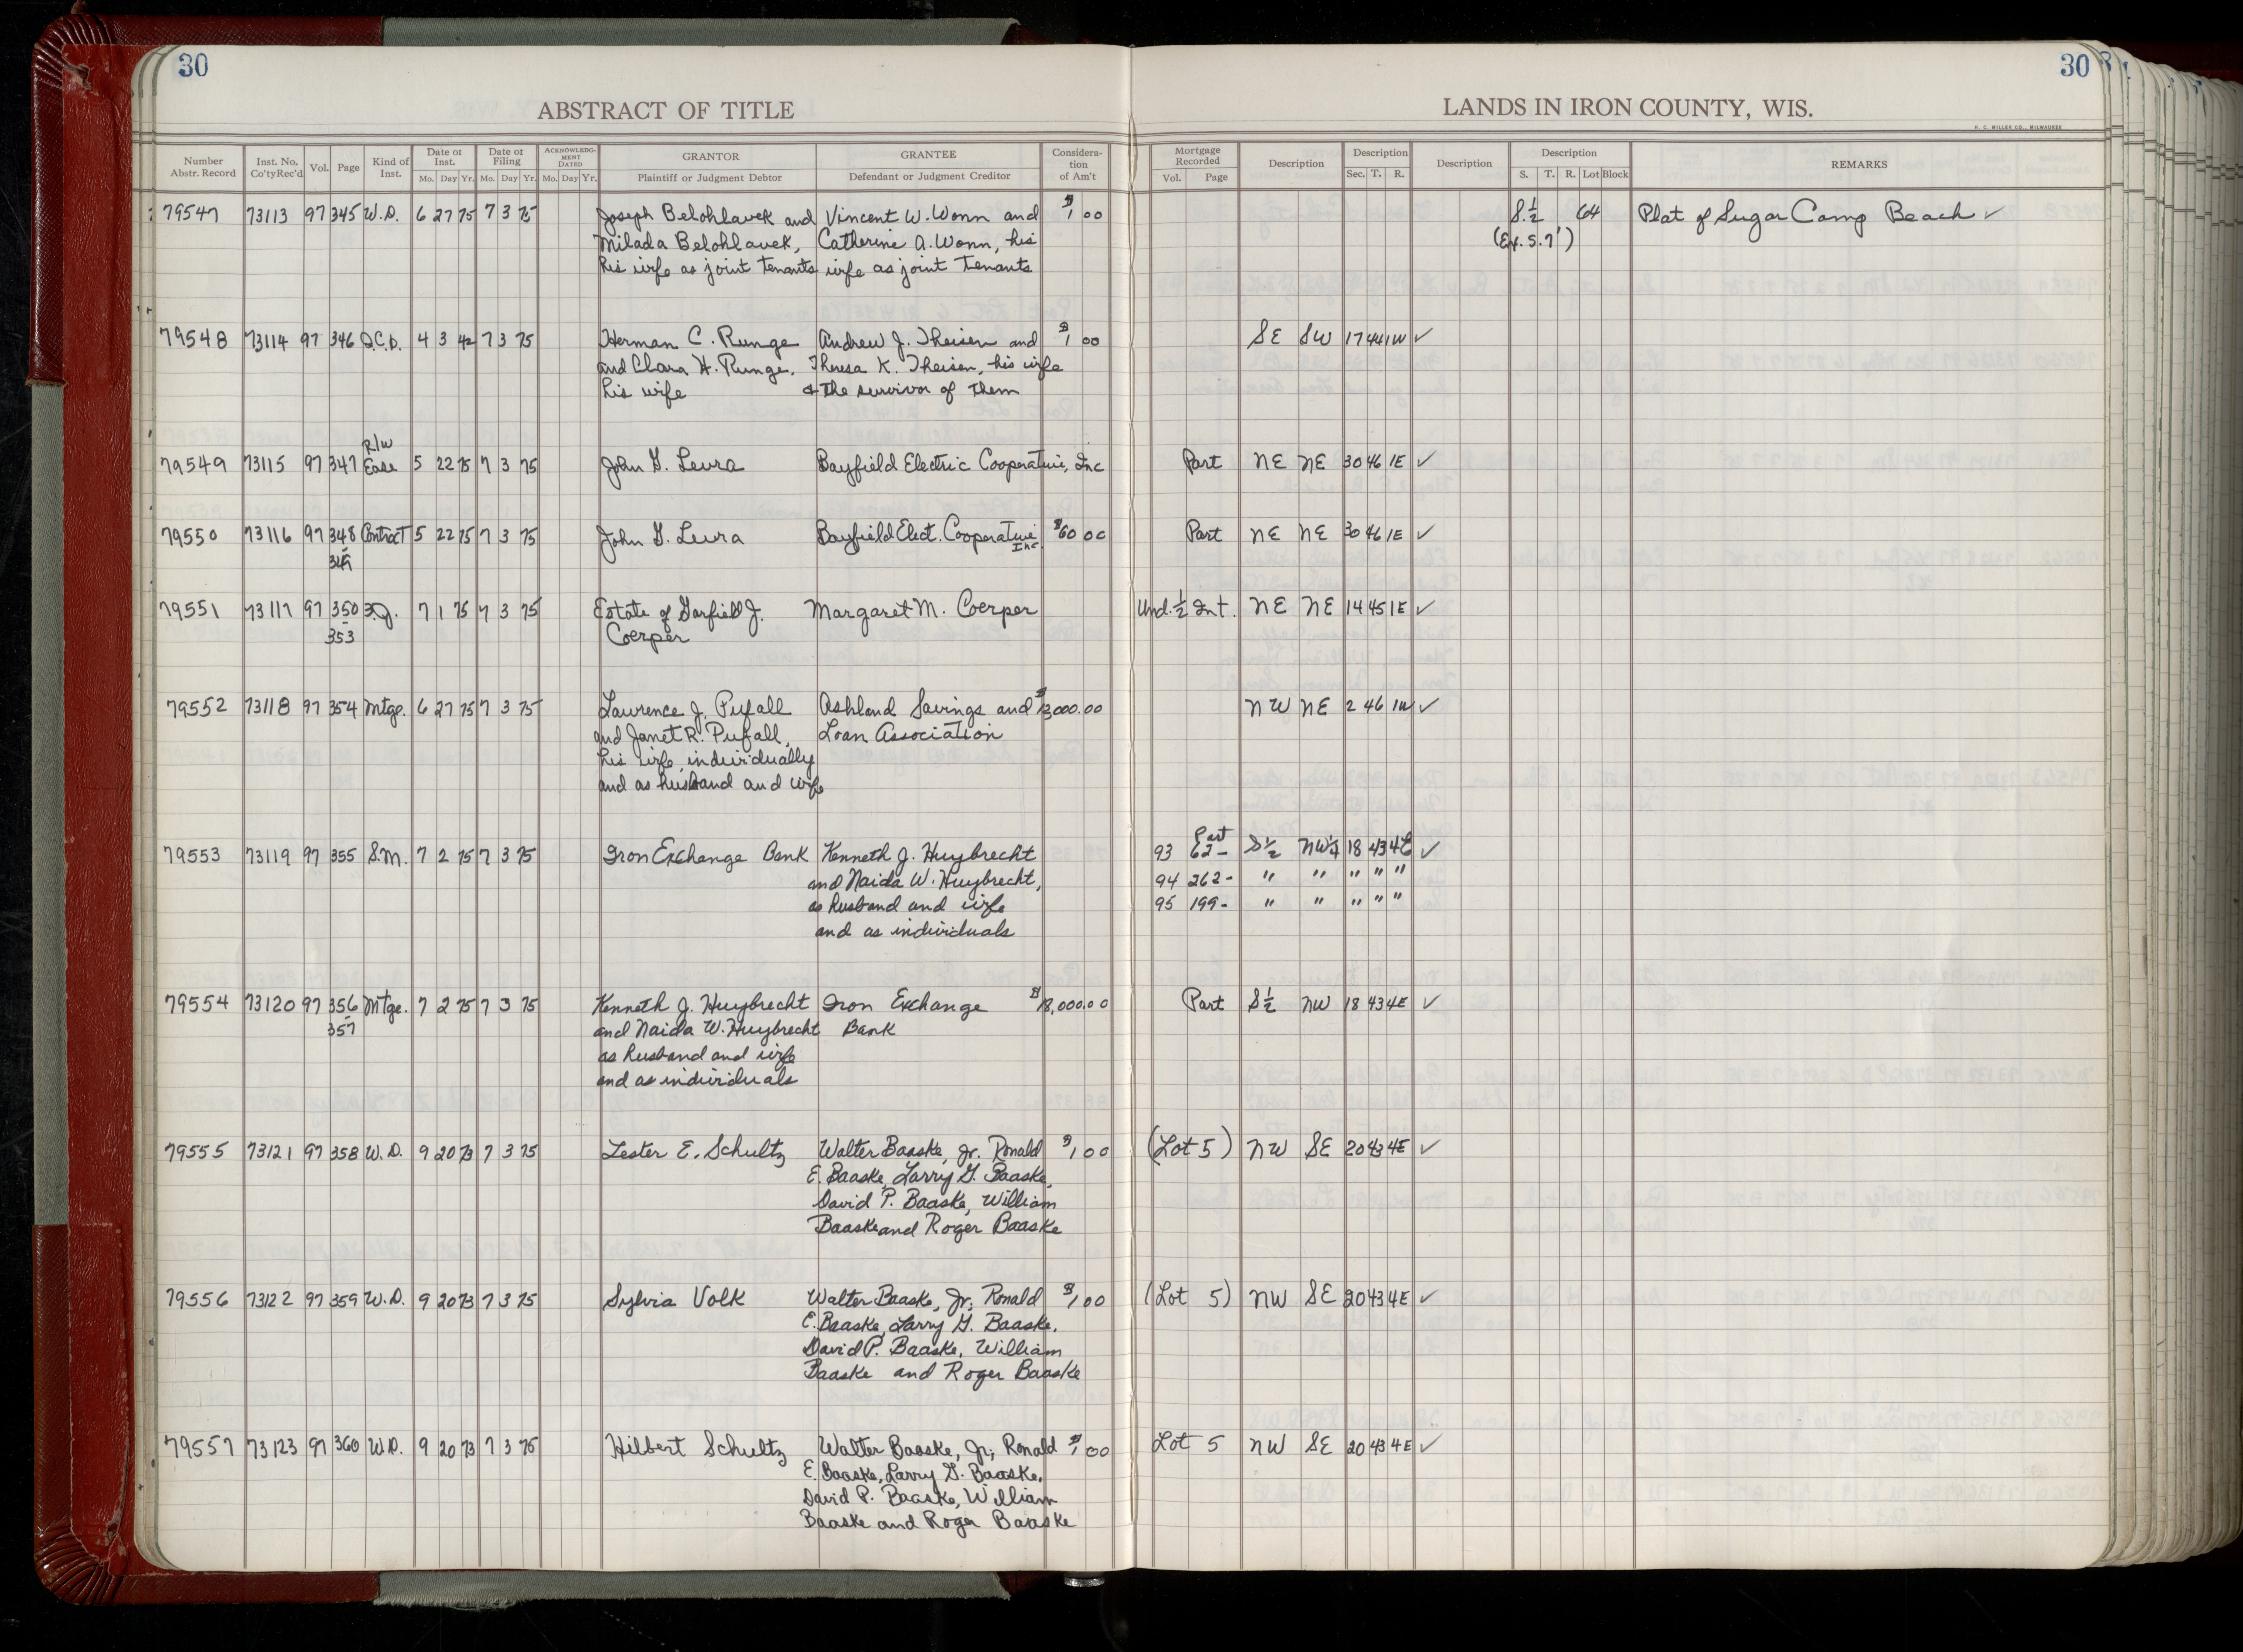 30
30
ABSTRACT OF TITLE
LANDS IN IRON COUNTY, WIS.
H. C. MILLER CO., MILWAUKEE
Number Abstr. Record | Inst. No. Co'ty Rec'd | Vol. | Page | Kind of Inst. | Date of Inst. Mo. Day Yr. | Date of Filing Mo. Day Yr. | ACKNOWLEDGMENT DATED Mo. Day Yr. | GRANTOR Plaintiff or Judgment Debtor | GRANTEE Defendant or Judgment Creditor | Consideration of Am't | Mortgage Recorded Vol. Page | Description | Description Sec. T. R. | Description | Description S. T. R. Lot Block | REMARKS
79547 73113 97 345 W.D. 6 27 75 7 3 75 Joseph Belohlavek and Vincent W. Wonn and $1.00 S.½ 64 Plat of Sugar Camp Beach ✓
Milada Belohlavek, Catherine A. Wonn, his (Ex. S. 7')
his wife as joint tenants wife as joint tenants
79548 73114 97 346 Q.C.D. 4 3 42 7 3 75 Herman C. Runge Andrew J. Theisen and $1.00 SE SW 17 44 1W ✓
and Clara H. Runge, Theresa K. Theisen, his wife
his wife & the survivor of them
R/W
79549 73115 97 347 Ease 5 22 75 7 3 75 John G. Leura Bayfield Electric Cooperative, Inc Part NE NE 30 46 1E ✓
79550 73116 97 348 Contract 5 22 75 7 3 75 John G. Leura Bayfield Elect. Cooperative $60.00 Part NE NE 30 46 1E ✓
349 Inc
79551 73117 97 350 F.J. 7 1 75 7 3 75 Estate of Garfield J. Margaret M. Coerper Und. ½ Int. NE NE 14 45 1E ✓
353 Coerper
79552 73118 97 354 Mtge. 6 27 75 7 3 75 Laurence J. Pufall Ashland Savings and $13,000.00 NW NE 2 46 1W ✓
and Janet R. Pufall, Loan Association
his wife, individually
and as husband and wife
79553 73119 97 355 S.M. 7 2 75 7 3 75 Iron Exchange Bank Kenneth J. Huybrecht 93 Part 62- S½ NW¼ 18 43 4E ✓
and Naida W. Huybrecht, 94 262- " " " " "
as husband and wife 95 199- " " " " "
and as individuals
79554 73120 97 356 Mtge. 7 2 75 7 3 75 Kenneth J. Huybrecht Iron Exchange $18,000.00 Part S½ NW 18 43 4E ✓
357 and Naida W. Huybrecht Bank
as husband and wife
and as individuals
79555 73121 97 358 W.D. 9 20 73 7 3 75 Lester E. Schultz Walter Baaske, Jr. Ronald $1.00 (Lot 5) NW SE 20 43 4E ✓
E. Baaske, Larry G. Baaske,
David P. Baaske, William
Baaske and Roger Baaske
79556 73122 97 359 W.D. 9 20 73 7 3 75 Sylvia Volk Walter Baaske, Jr., Ronald $1.00 (Lot 5) NW SE 20 43 4E ✓
E. Baaske, Larry G. Baaske,
David P. Baaske, William
Baaske and Roger Baaske
79557 73123 97 360 W.D. 9 20 73 7 3 75 Hilbert Schultz Walter Baaske, Jr., Ronald $1.00 Lot 5 NW SE 20 43 4E ✓
E. Baaske, Larry G. Baaske,
David P. Baaske, William
Baaske and Roger Baaske